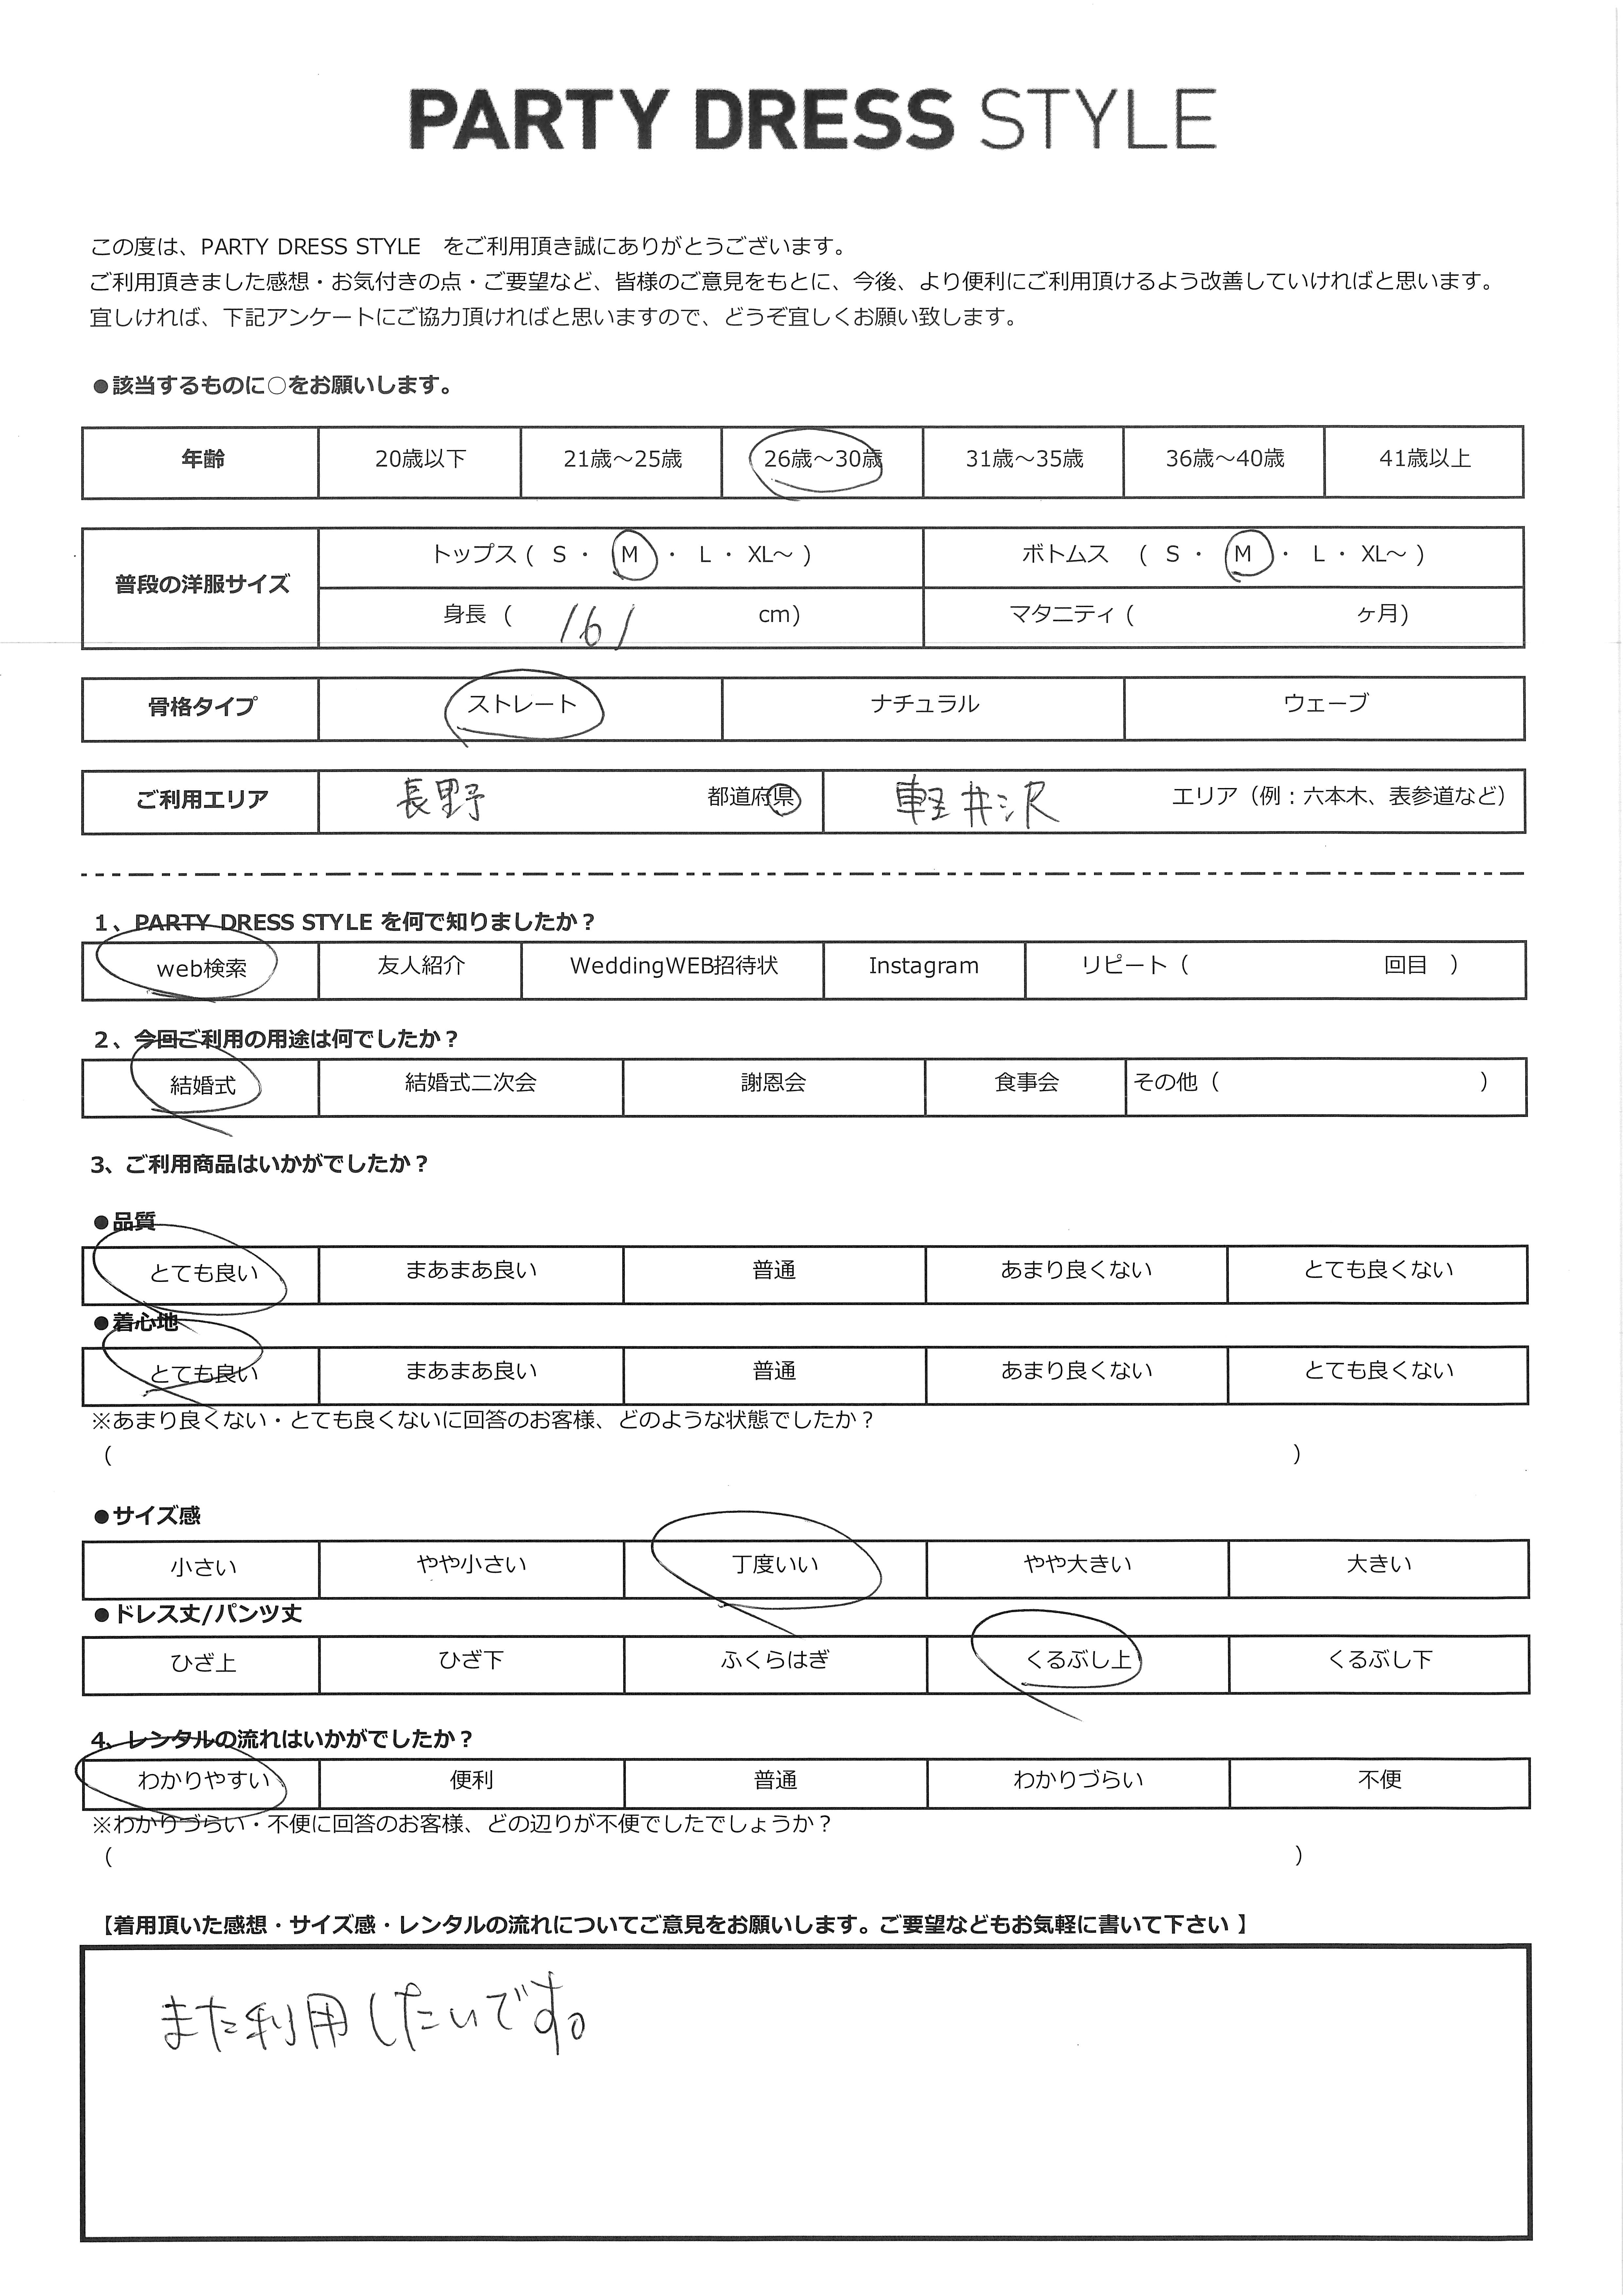 PARTY DRESS STYLE
この度は、PARTY DRESS STYLE　をご利用頂き誠にありがとうございます。
ご利用頂きました感想・お気付きの点・ご要望など、皆様のご意見をもとに、今後、より便利にご利用頂けるよう改善していければと思います。
宜しければ、下記アンケートにご協力頂ければと思いますので、どうぞ宜しくお願い致します。
●該当するものに○をお願いします。
年齢 20歳以下 21歳～25歳 26歳～30歳 31歳～35歳 36歳～40歳 41歳以上
普段の洋服サイズ
トップス ( S ・ M ・ L ・ XL～ ) ボトムス ( S ・ M ・ L ・ XL～ )
身長 ( 161 cm) マタニティ ( ヶ月)
骨格タイプ ストレート ナチュラル ウェーブ
ご利用エリア 長野 都道府県 軽井沢 エリア（例：六本木、表参道など）
1、PARTY DRESS STYLE を何で知りましたか？
web検索 友人紹介 WeddingWEB招待状 Instagram リピート（ 回目 ）
2、今回ご利用の用途は何でしたか？
結婚式 結婚式二次会 謝恩会 食事会 その他（ ）
3、ご利用商品はいかがでしたか？
●品質
とても良い まあまあ良い 普通 あまり良くない とても良くない
●着心地
とても良い まあまあ良い 普通 あまり良くない とても良くない
※あまり良くない・とても良くないに回答のお客様、どのような状態でしたか？
（ ）
●サイズ感
小さい やや小さい 丁度いい やや大きい 大きい
●ドレス丈/パンツ丈
ひざ上 ひざ下 ふくらはぎ くるぶし上 くるぶし下
4、レンタルの流れはいかがでしたか？
わかりやすい 便利 普通 わかりづらい 不便
※わかりづらい・不便に回答のお客様、どの辺りが不便でしたでしょうか？
（ ）
【着用頂いた感想・サイズ感・レンタルの流れについてご意見をお願いします。ご要望などもお気軽に書いて下さい 】
また利用したいです。